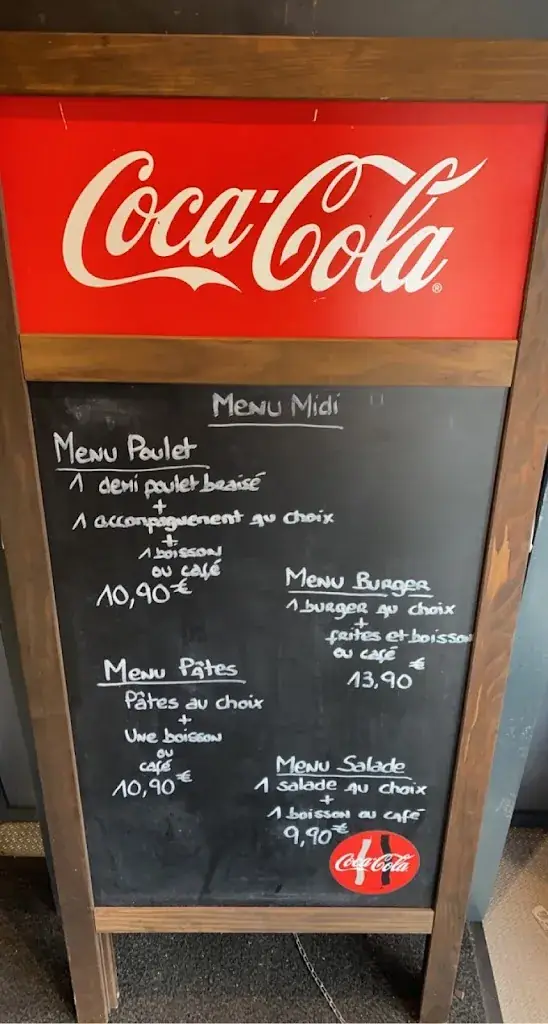 Coca-Cola®
Menu Midi
Menu Poulet
1 demi poulet braisé
+
1 accompagnement au choix
+
1 boisson
ou café
10,90€
Menu Burger
1 burger au choix
+
frites et boisson
ou café
13,90€
Menu Pâtes
Pâtes au choix
+
Une boisson
ou
café
10,90€
Menu Salade
1 salade au choix
+
1 boisson ou café
9,90€
Coca-Cola